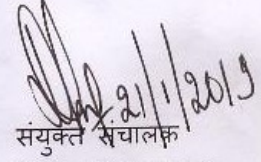 21/1/2019
संयुक्त संचालक